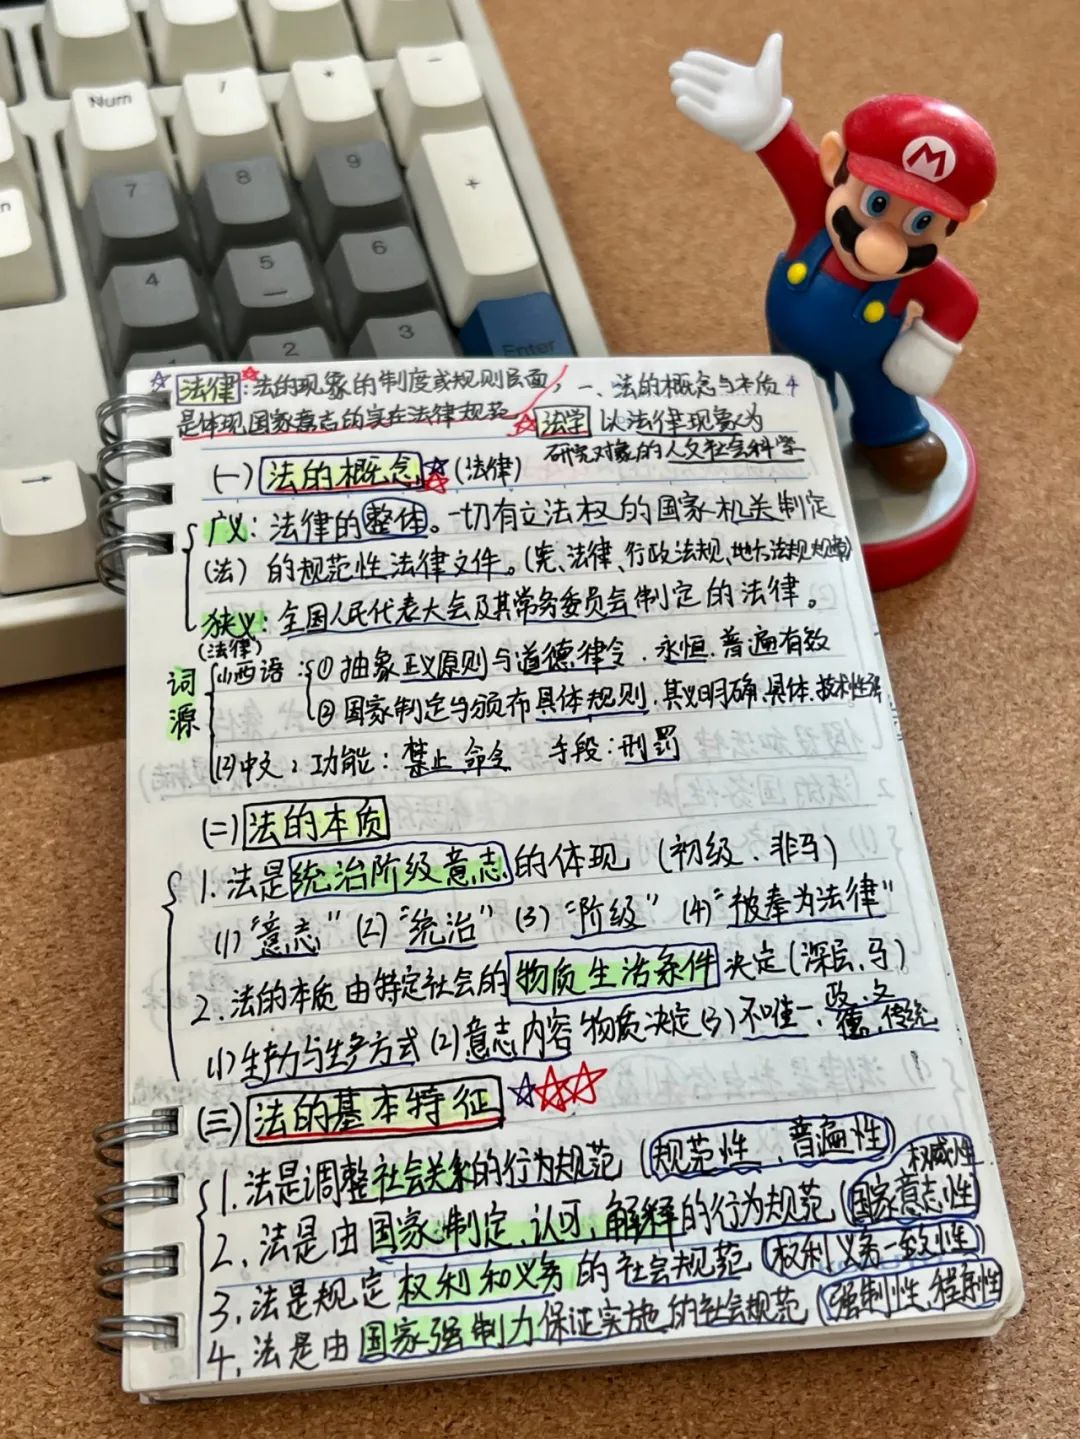 Num
/
*
-
7
8
9
+
4
5
6
1
2
3
Enter
n
→
M
法律:法的现象的制度或规则层面,
是体现国家意志的实在法律规范
一、法的概念与本质
法学 以法律现象为
研究对象的人文社会科学
(一) 法的概念 (法律)
广义:法律的整体。一切有立法权的国家机关制定
(法) 的规范性法律文件。(宪、法律、行政法规、地方法规规章)
狭义:全国人民代表大会及其常务委员会制定的法律。
(法律)
词源
(1)西语:① 抽象正义原则与道德律令、永恒、普遍有效
② 国家制定与颁布具体规则、其义明确、具体、技术性强
(2)中文:功能:禁止 命令 手段:刑罚
(二) 法的本质
1.法是统治阶级意志的体现 (初级、非马)
(1)“意志” (2)“统治” (3)“阶级” (4)“被奉为法律”
2.法的本质由特定社会的物质生活条件决定(深层、马)
(1)生产力与生产方式 (2)意志内容物质决定 (3)不唯一、政、文、德、传统
(三) 法的基本特征
1.法是调整社会关系的行为规范 (规范性、普遍性)
权威性
2.法是由国家制定、认可、解释的行为规范 (国家意志性)
3.法是规定权利和义务的社会规范 (权利义务一致性)
4.法是由国家强制力保证实施的社会规范 (强制性、程序性)